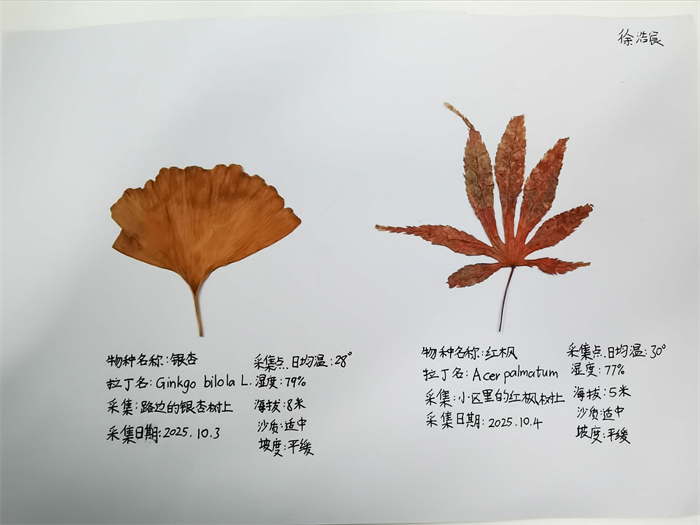 徐浩宸
物种名称:银杏
拉丁名: Ginkgo bilola L.
采集:路边的银杏树上
采集日期:2025.10.3
采集点.日均温:28°
湿度:79%
海拔:8米
沙质:适中
坡度:平缓
物种名称:红枫
拉丁名: Acer palmatum
采集:小区里的红枫树上
采集日期:2025.10.4
采集点.日均温:30°
湿度:77%
海拔:5米
沙质:适中
坡度:平缓